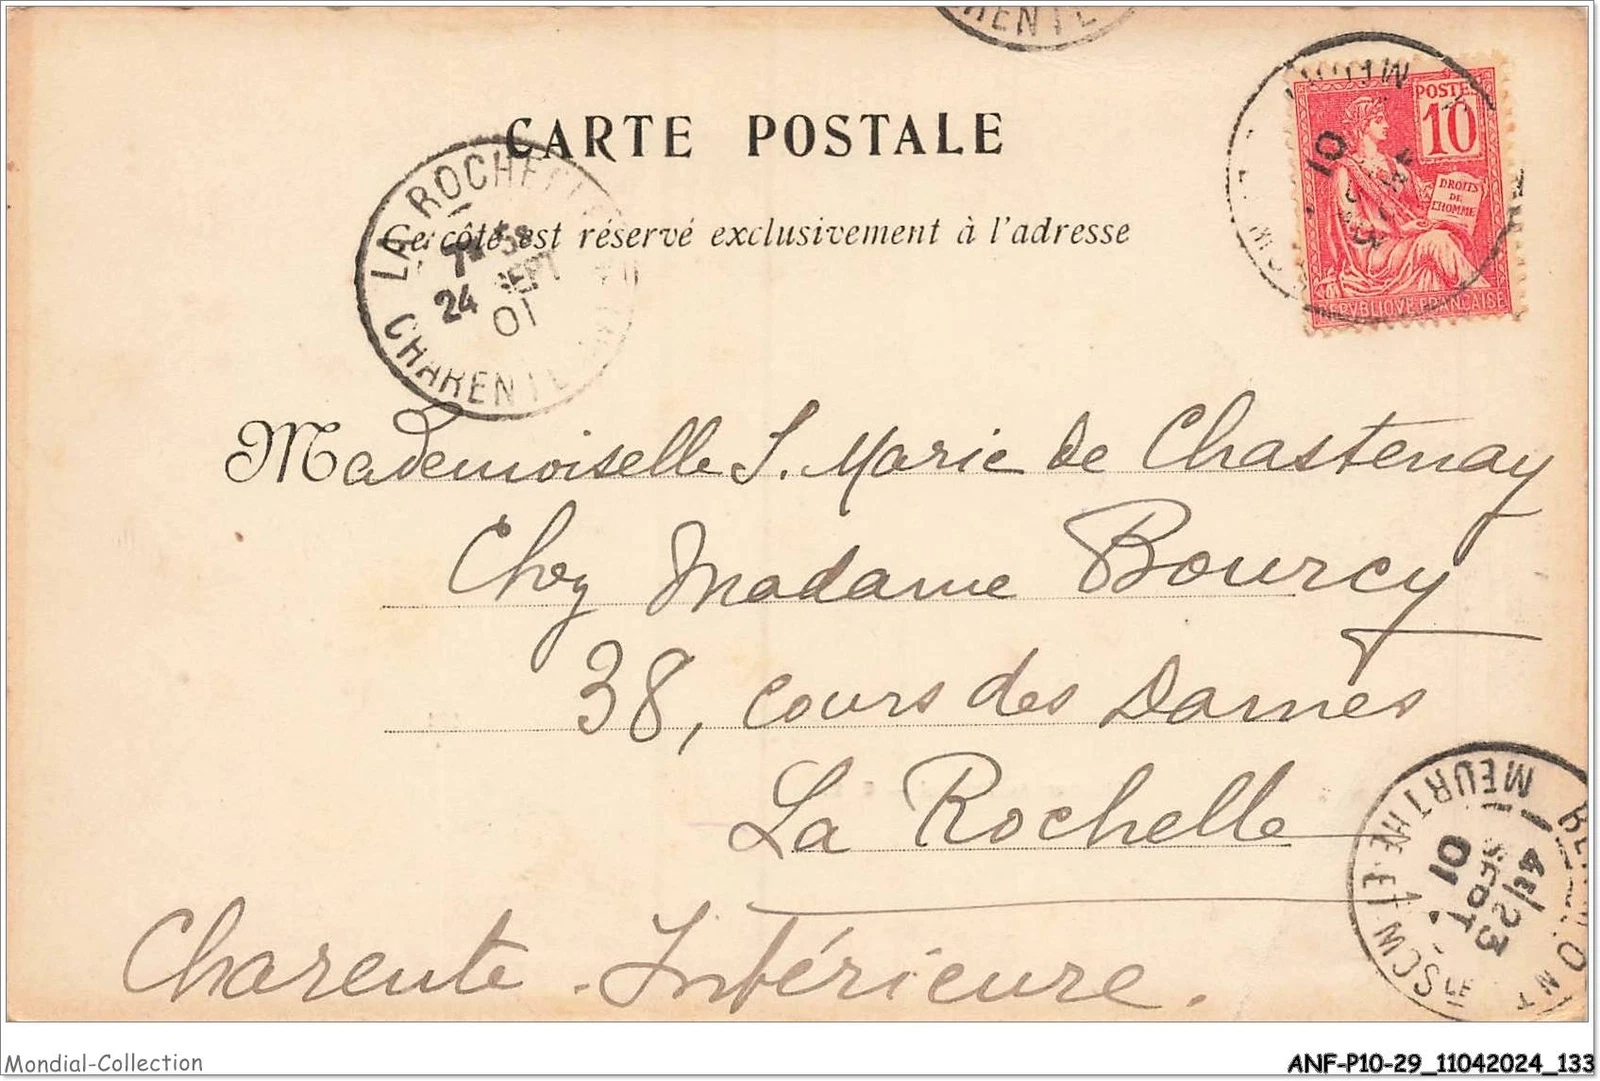 CARTE POSTALE
Ce côté est réservé exclusivement à l'adresse
POSTES
10
DROITS
DE
L'HOMME
REPVBLIQVE FRANCAISE
LA ROCHELLE
24 SEPT
01
CHARENTE
Mademoiselle S. Marie de Chastenay
Chez Madame Bourcy
38, cours des Dames
La Rochelle
Charente - Inférieure.
MEURTHE ET
23
SEPT
01
Mondial-Collection
ANF-P10-29_11042024_133